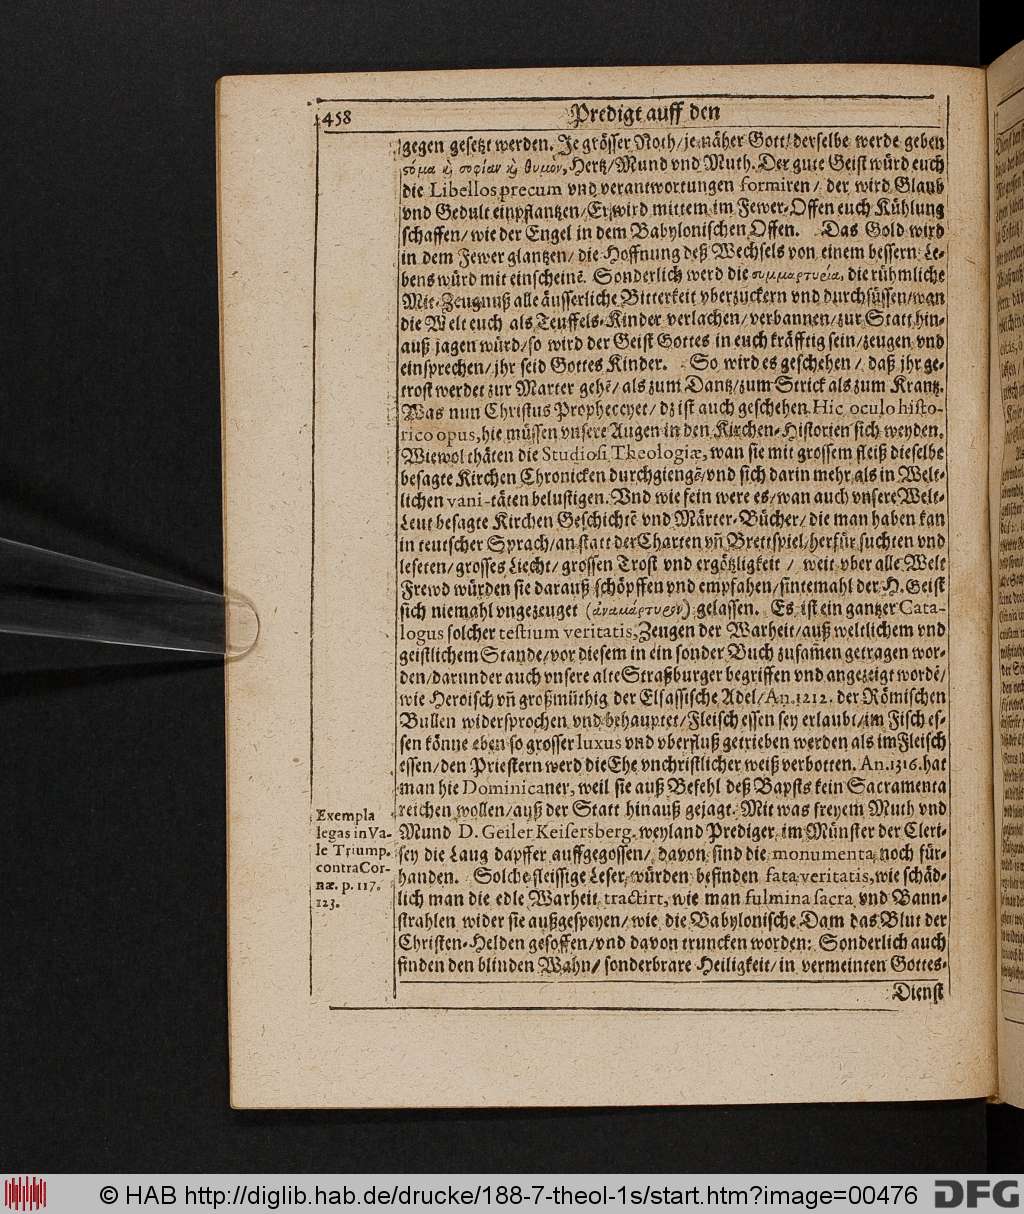 458
Predigt auff den
gegen gesetzt werden. Je grösser Noth/ je näher Gott/ derselbe werde geben
ςόμα κ̀ σοφίαν κ̀ θυμὸν, Hertz/ Mund vnd Muth. Der gute Geist würd euch
die Libellos precum vnd verantwortungen formiren/ der wird Glaub
vnd Gedult einpflantzen/ Er wird mitten im Fewer-Offen euch Kühlung
schaffen/ wie der Engel in dem Babylonischen Offen. Das Gold wird
in dem Fewer glantzen/ die Hoffnung deß Wechsels von einem bessern Le-
bens würd mit einscheinē. Sonderlich werd die συμμαρτυρία, die rühmliche
Mit-Zeugnuß alle äusserliche Bitterkeit vberzuckern vnd durchsüssen/ wan
die Welt euch als Teuffels-Kinder verlachen/ verbannen/ zur Statt hin-
auß jagen würd/ so wird der Geist Gottes in euch kräfftig sein/ zeugen vnd
einsprechen/ jhr seid Gottes Kinder. So wird es geschehen/ daß jhr ge-
trost werdet zur Marter gehē/ als zum Dantz/ zum Strick als zum Krantz.
Was nun Christus Propheceyet/ dz ist auch geschehen. Hic oculo histo-
rico opus, hie müssen vnsere Augen in den Kirchen-Historien sich weyden.
Wiewol thäten die Studiosi Theologiæ, wan sie mit grossem fleiß dieselbe
besagte Kirchen Chronicken durchgiengē/ vnd sich darin mehr als in Welt-
lichen vani-täten belustigen. Vnd wie fein were es/ wan auch vnsere Welt-
Leut besagte Kirchen Geschichtē vnd Märter-Bücher/ die man haben kan
in teutscher Sprach/ an statt der Charten vñ Brettspiel/ herfür suchten vnd
leseten/ grosses Liecht/ grossen Trost vnd ergötzligkeit/ weit vber alle Welt
Frewd würden sie darauß schöpffen vnd empfahen/ sintemahl der H. Geist
sich niemahl vngezeuget (ἀναμάρτυρὸν) gelassen. Es ist ein gantzer Cata-
logus solcher testium veritatis, Zeugen der Warheit/ auß weltlichem vnd
geistlichem Stande/ vor diesem in ein sonder Buch zusam̃en getragen wor-
den/ darunder auch vnsere alte Straßburger begriffen vnd angezeigt wordē/
wie Heroisch vñ großmüthig der Elsassische Adel/ An. 1212. der Römischen
Bullen widersprochen vnd behauptet/ Fleisch essen sey erlaubt/ im Fisch es-
sen könne eben so grosser luxus vnd vberfluß getrieben werden als im Fleisch
essen/ den Priestern werd die Ehe vnchristlicher weiß verbotten. An. 1316. hat
man hie Dominicaner, weil sie auß Befehl deß Bapsts kein Sacramenta
reichen wollen/ auß der Statt hinauß gejagt. Mit was freyem Muth vnd
Mund D. Geiler Keisersberg. weyland Prediger im Münster der Cleri-
sey die Laug dapffer auffgegossen/ davon sind die monumenta noch für-
handen. Solche fleissige Leser würden befinden fata veritatis, wie schäd-
lich man die edle Warheit tractirt, wie man fulmina sacra vnd Bann-
strahlen wider sie außgespeyen/ wie die Babylonische Dam das Blut der
Christen-Helden gesoffen/ vnd davon truncken worden: Sonderlich auch
finden den blinden Wahn/ sonderbrare Heiligkeit/ in vermeinten Gottes-
Dienst
Exempla
legas in Va-
le Triump.
contra Cor-
næ. p. 117.
123.
© HAB http://diglib.hab.de/drucke/188-7-theol-1s/start.htm?image=00476
DFG